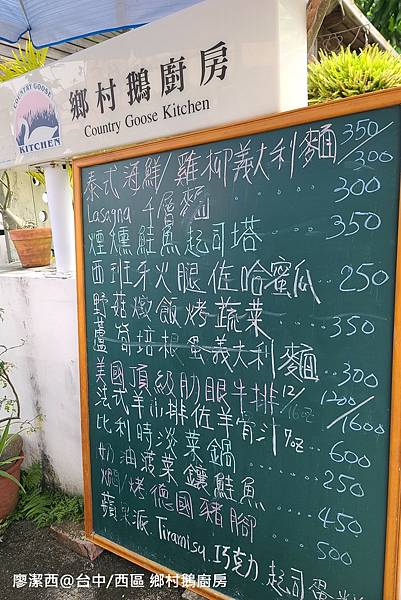 COUNTRY GOOSE
KITCHEN
鄉村鵝廚房
Country Goose Kitchen
泰式海鮮/雞柳義大利麵 350/300
Lasagna 千層麵 300
煙燻鮭魚起司塔 350
西班牙火腿佐哈蜜瓜 250
野菇燉飯烤蔬菜 350
蘆筍培根蛋義大利麵 300
美國頂級肋眼牛排 12/16oz 1200/1600
法式羊小排佐羊骨汁 7oz 600
比利時淡菜鍋 250
奶油菠菜鑲鮭魚 450
烤德國豬腳 500
蘋果派.Tiramisu.巧克力.起司蛋糕
廖潔西@台中/西區 鄉村鵝廚房